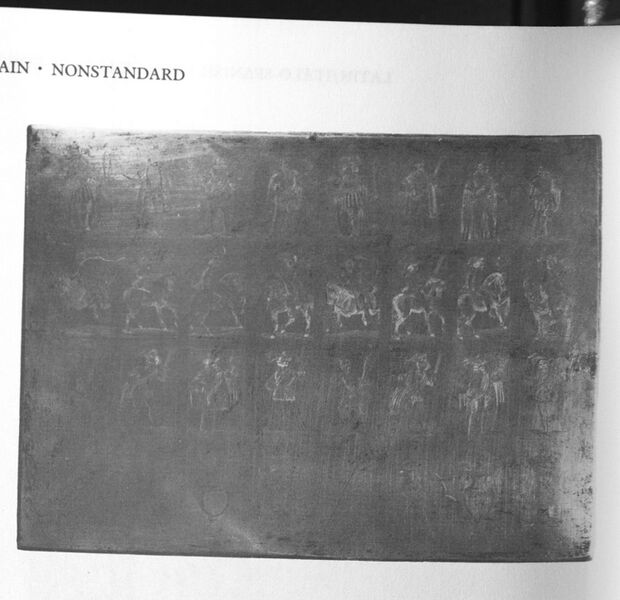 AIN · NONSTANDARD